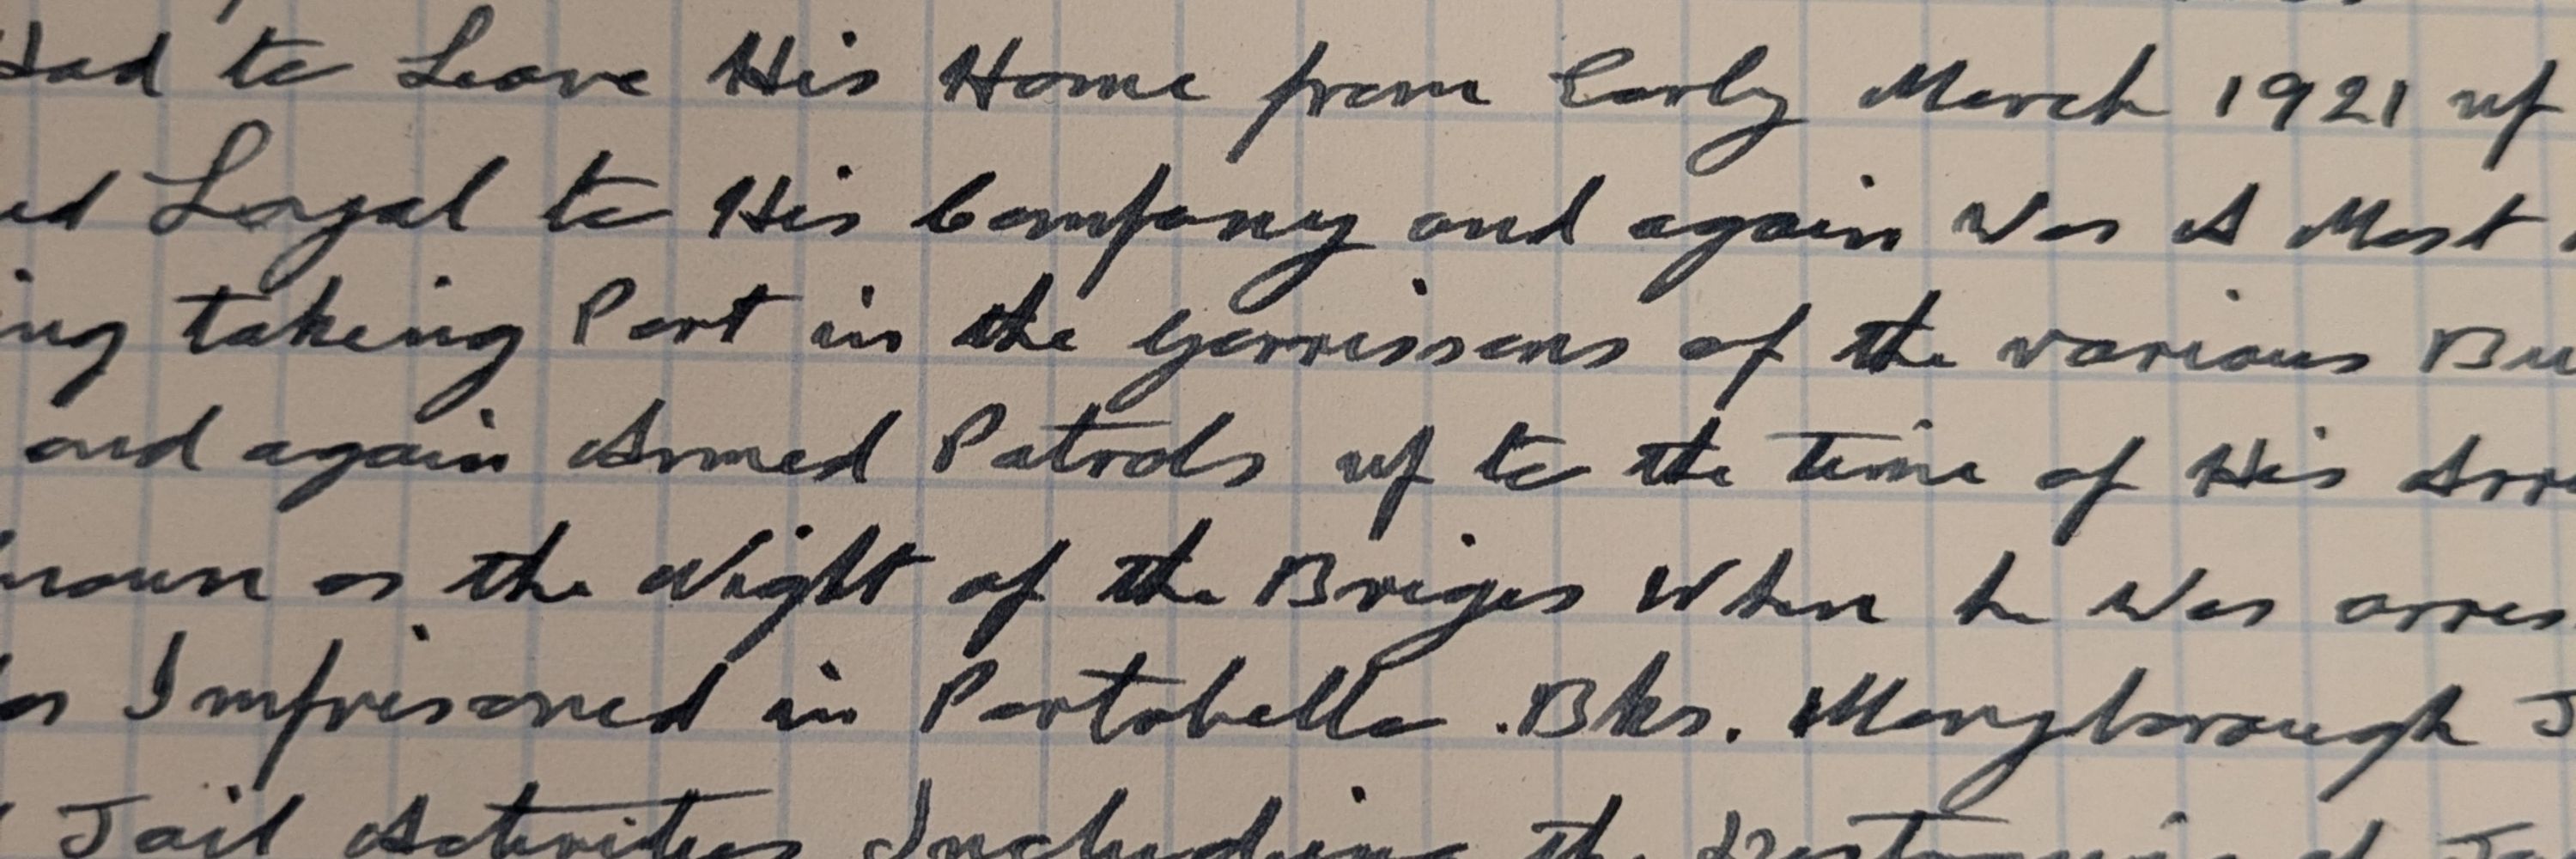 Had to Leave His Home from Early March 1921 up
ed Loyal to His Company and again Was A Most
ing taking Part in the Garrissons of the various Bu
and again Armed Patrols up to the time of His Arre
known as the Night of the Briges When he Was arres
as Imprisoned in Portobello .Bks. Maryborough J
Jail Activities Including the Destroying of Ja